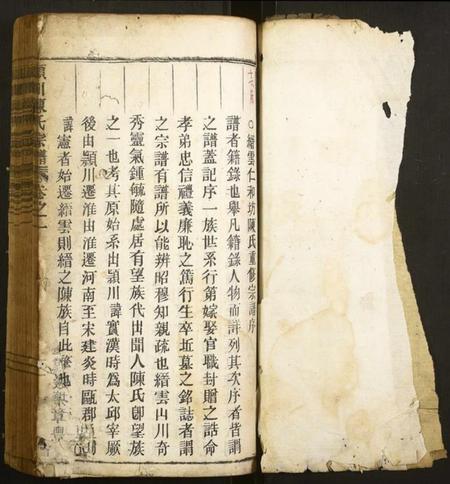 縉雲仁和坊陳氏重修宗譜序
譜者籍錄也舉凡籍錄人物而詳列其次序者皆謂
之譜蓋記序一族世系行第嫁娶官職封贈之誥命
孝弟忠信禮義廉恥之篤行生卒坵墓之銘誌者謂
之宗譜有譜所以能辨昭穆知親疏也縉雲山川奇
秀靈氣鍾毓隨處居有望族代出聞人陳氏卽望族
之一也考其原始系出頴川諱實漢時為太邱宰厥
後由頴川遷淮由淮遷河南至宋建炎時甌郡
諱憲者始遷縉雲則縉之陳族自此肇也
頴川陳氏宗譜 卷之一